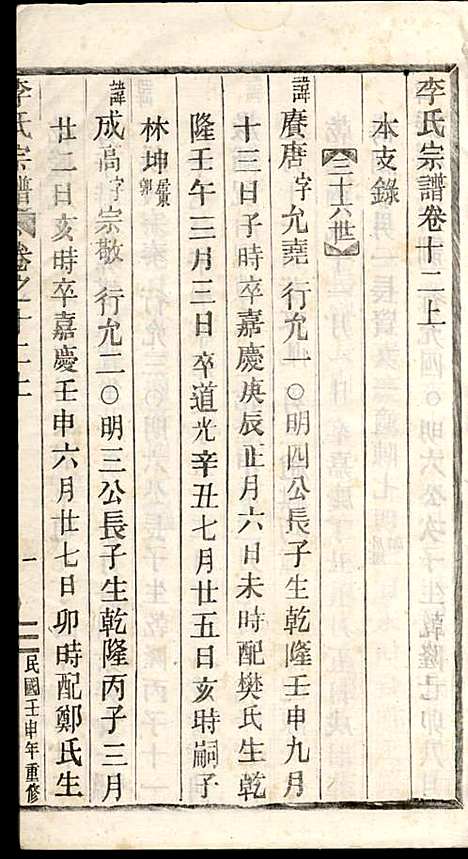 李氏宗譜卷十二上
本支錄
【三十六世】
諱賡唐字允堯行允一○明四公長子生乾隆壬申九月
十三日子時卒嘉慶庚辰正月六日未時配樊氏生乾
隆壬午三月三日卒道光辛丑七月廿五日亥時嗣子
林坤
諱成高字宗敬行允二○明三公長子生乾隆丙子三月
廿二日亥時卒嘉慶壬申六月廿七日卯時配鄭氏生
李氏宗譜 卷之十二上 一 民國壬申年重修